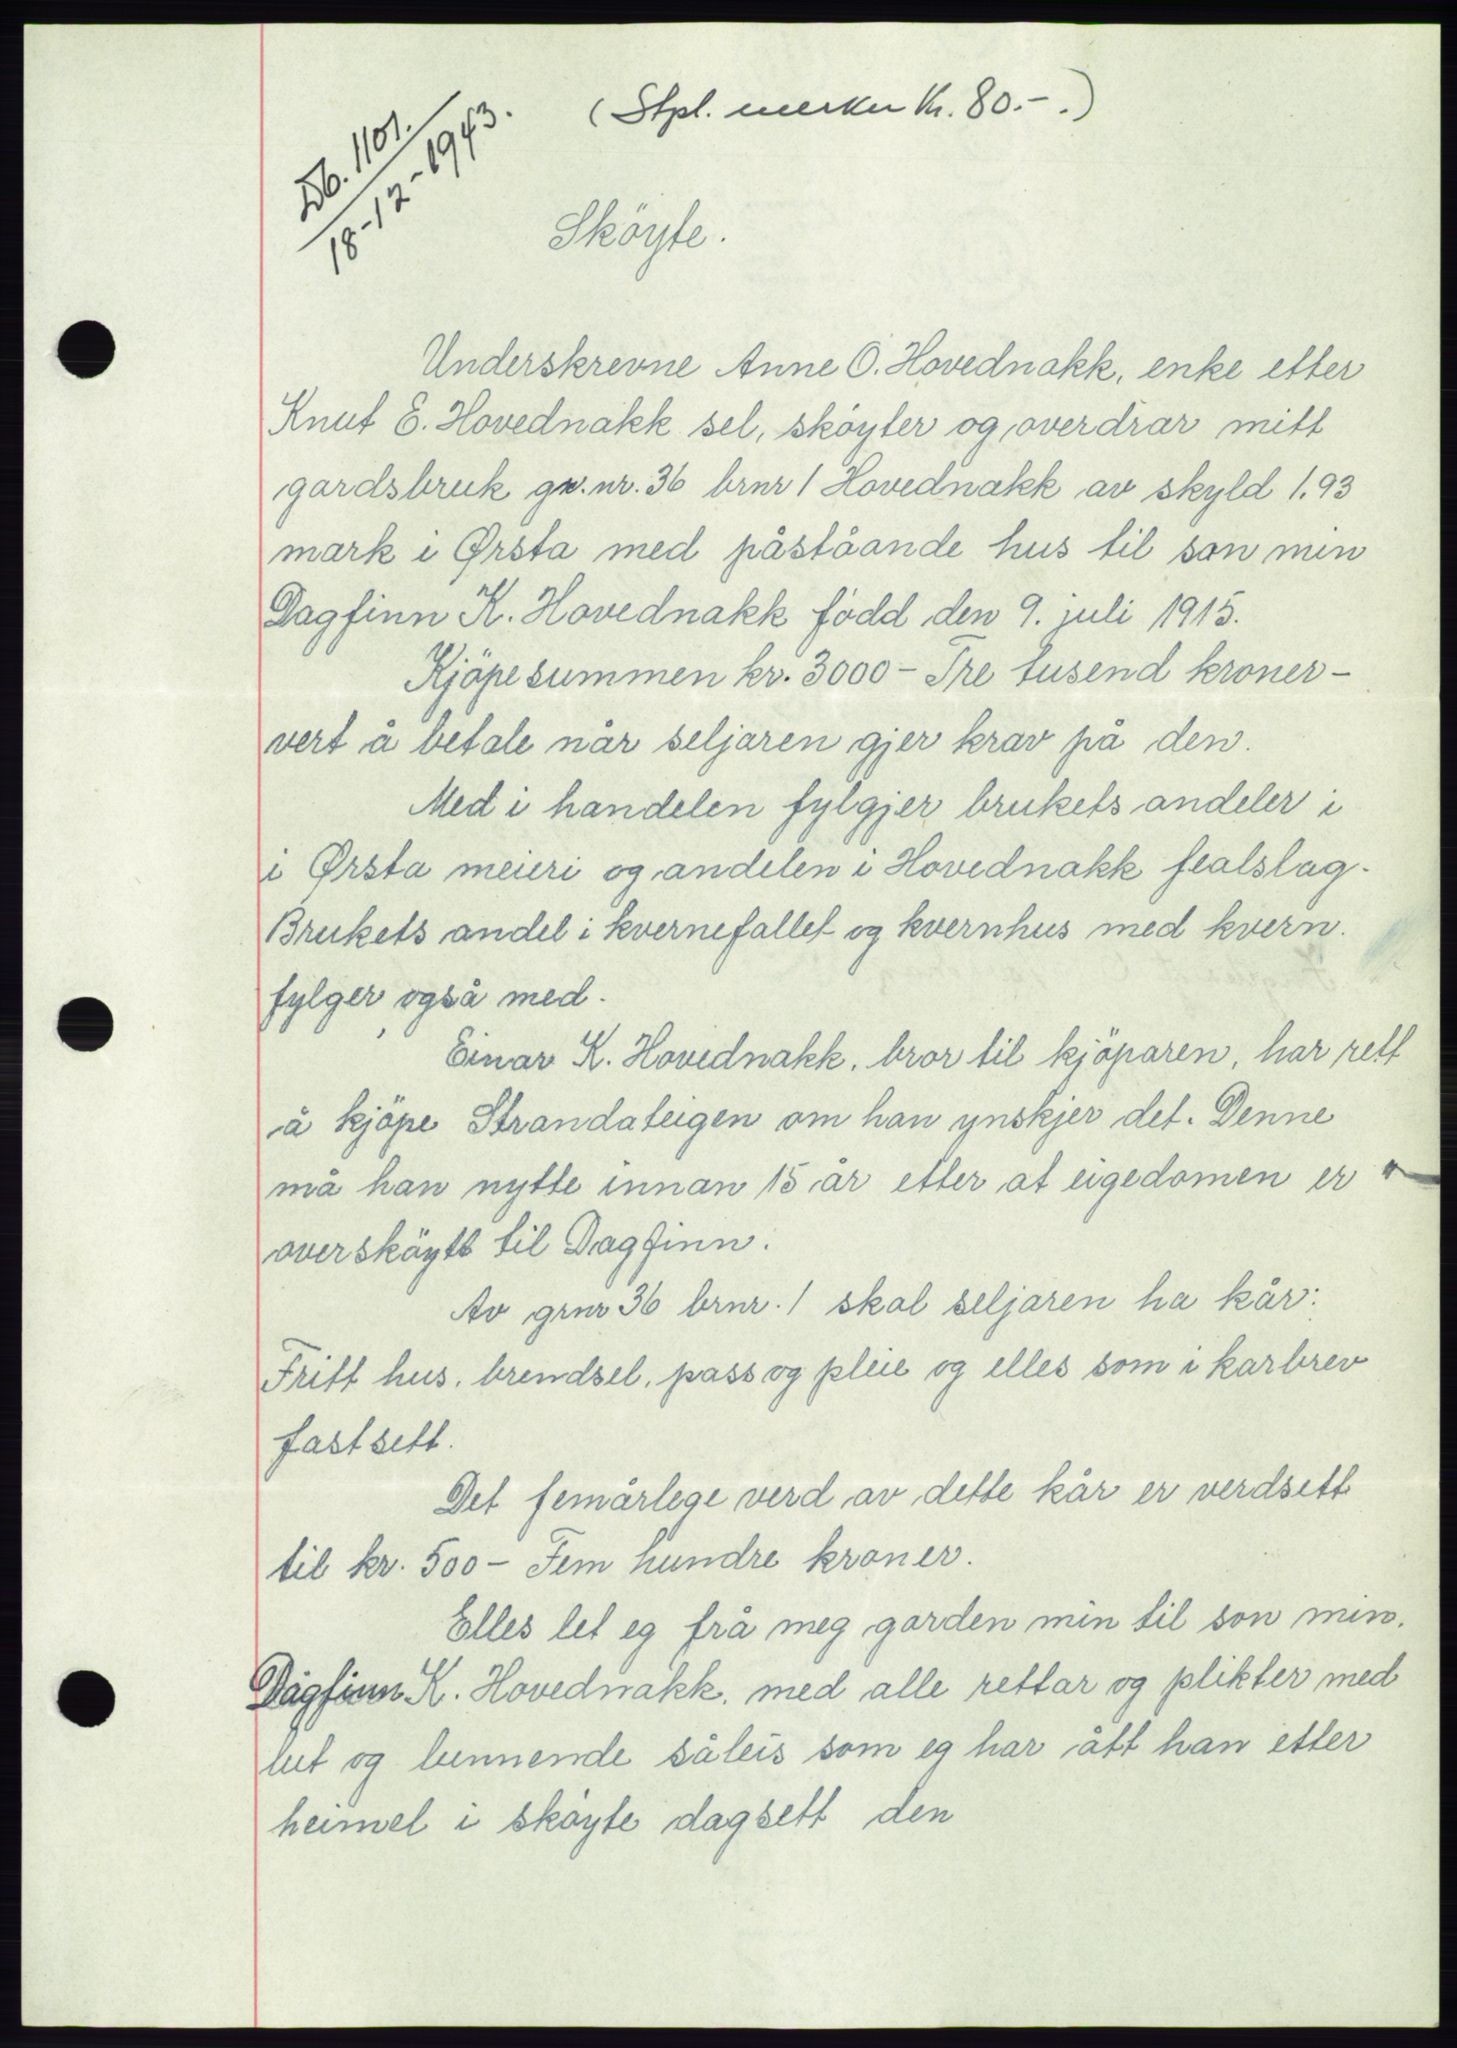 Db. 1101.
18-12-1943.
(Stpl. merker Kr. 80.-.)
Sköyte.
Underskrevne Anne O. Hovednakk, enke etter
Knut E. Hovednakk sel, sköyter og overdrar mitt
gardsbruk gr. nr. 36 brnr 1 Hovednakk av skyld 1.93
mark i Ørsta med påståande hus til son min
Dagfinn K. Hovednakk född den 9. juli 1915.
Kjöpesummen kr. 3000- Tre tusend kroner-
vert å betale når seljaren gjer krav på den.
Med i handelen fylgjer brukets andeler i
i Ørsta meieri og andelen i Hovednakk fealslag.
Brukets andel i kvernefallet og kvernhus med kvern.
fylger også med.
Einar K. Hovednakk, bror til kjöparen, har rett
å kjöpe Strandateigen om han ynskjer det. Denne
må han nytte innan 15 år etter at eigedomen er
oversköytt til Dagfinn.
Av grnr 36 brnr. 1 skal seljaren ha kår:
Fritt hus, brendsel, pass og pleie og elles som i karbrev
fastsett.
Det femårlege verd av dette kår er verdsett
til kr. 500- Fem hundre kroner.
Elles let eg frå meg garden min til son min.
Dagfinn K. Hovednakk, med alle rettar og plikter med
lut og lunnende såleis som eg har ått han etter
heimel i sköyte dagsett den